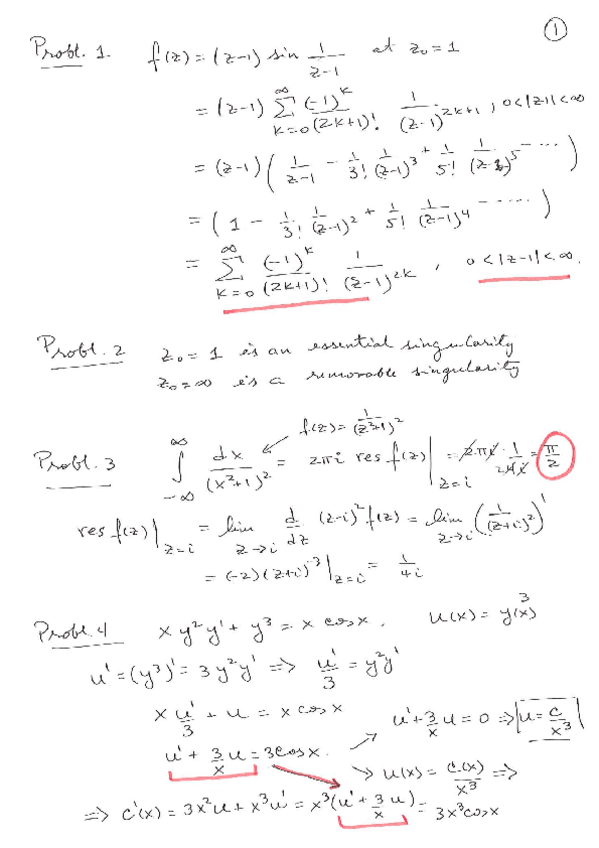 ①
Probl. 1. f(z) = (z-1) sin 1/(z-1) at z₀ = 1
= (z-1) ∑_{k=0}^{∞} (-1)^k/(2k+1)! 1/(z-1)^{2k+1}, 0<|z-1|<∞
= (z-1) ( 1/(z-1) - 1/3! 1/(z-1)^3 + 1/5! 1/(z-1)^5 - ... )
= ( 1 - 1/3! 1/(z-1)^2 + 1/5! 1/(z-1)^4 - ..... )
= ∑_{k=0}^{∞} (-1)^k/(2k+1)! 1/(z-1)^{2k}, 0<|z-1|<∞.
Probl. 2 z₀ = 1 is an essential singularity
z₀ = ∞ is a removable singularity
f(z) = 1/(z²+1)²
Probl. 3 ∫_{-∞}^{∞} dx/(x²+1)² = 2πi res f(z)|_{z=i} = 2·πi · 1/(2 4i) = π/2
res f(z)|_{z=i} = lim_{z→i} d/dz (z-i)² f(z) = lim_{z→i} (1/(z+i)²)'
= (-2)(z+i)^{-3}|_{z=i} = 1/4i
Probl. 4 x y² y' + y³ = x cos x. u(x) = y³(x)
u' = (y³)' = 3y²y' => u'/3 = y²y'
x u'/3 + u = x cos x
u' + 3/x u = 0 => u = c/x³
u' + 3/x u = 3cos x.
→ u(x) = c(x)/x³ =>
=> c'(x) = 3x²u + x³u' = x³(u' + 3/x u) = 3x³cos x